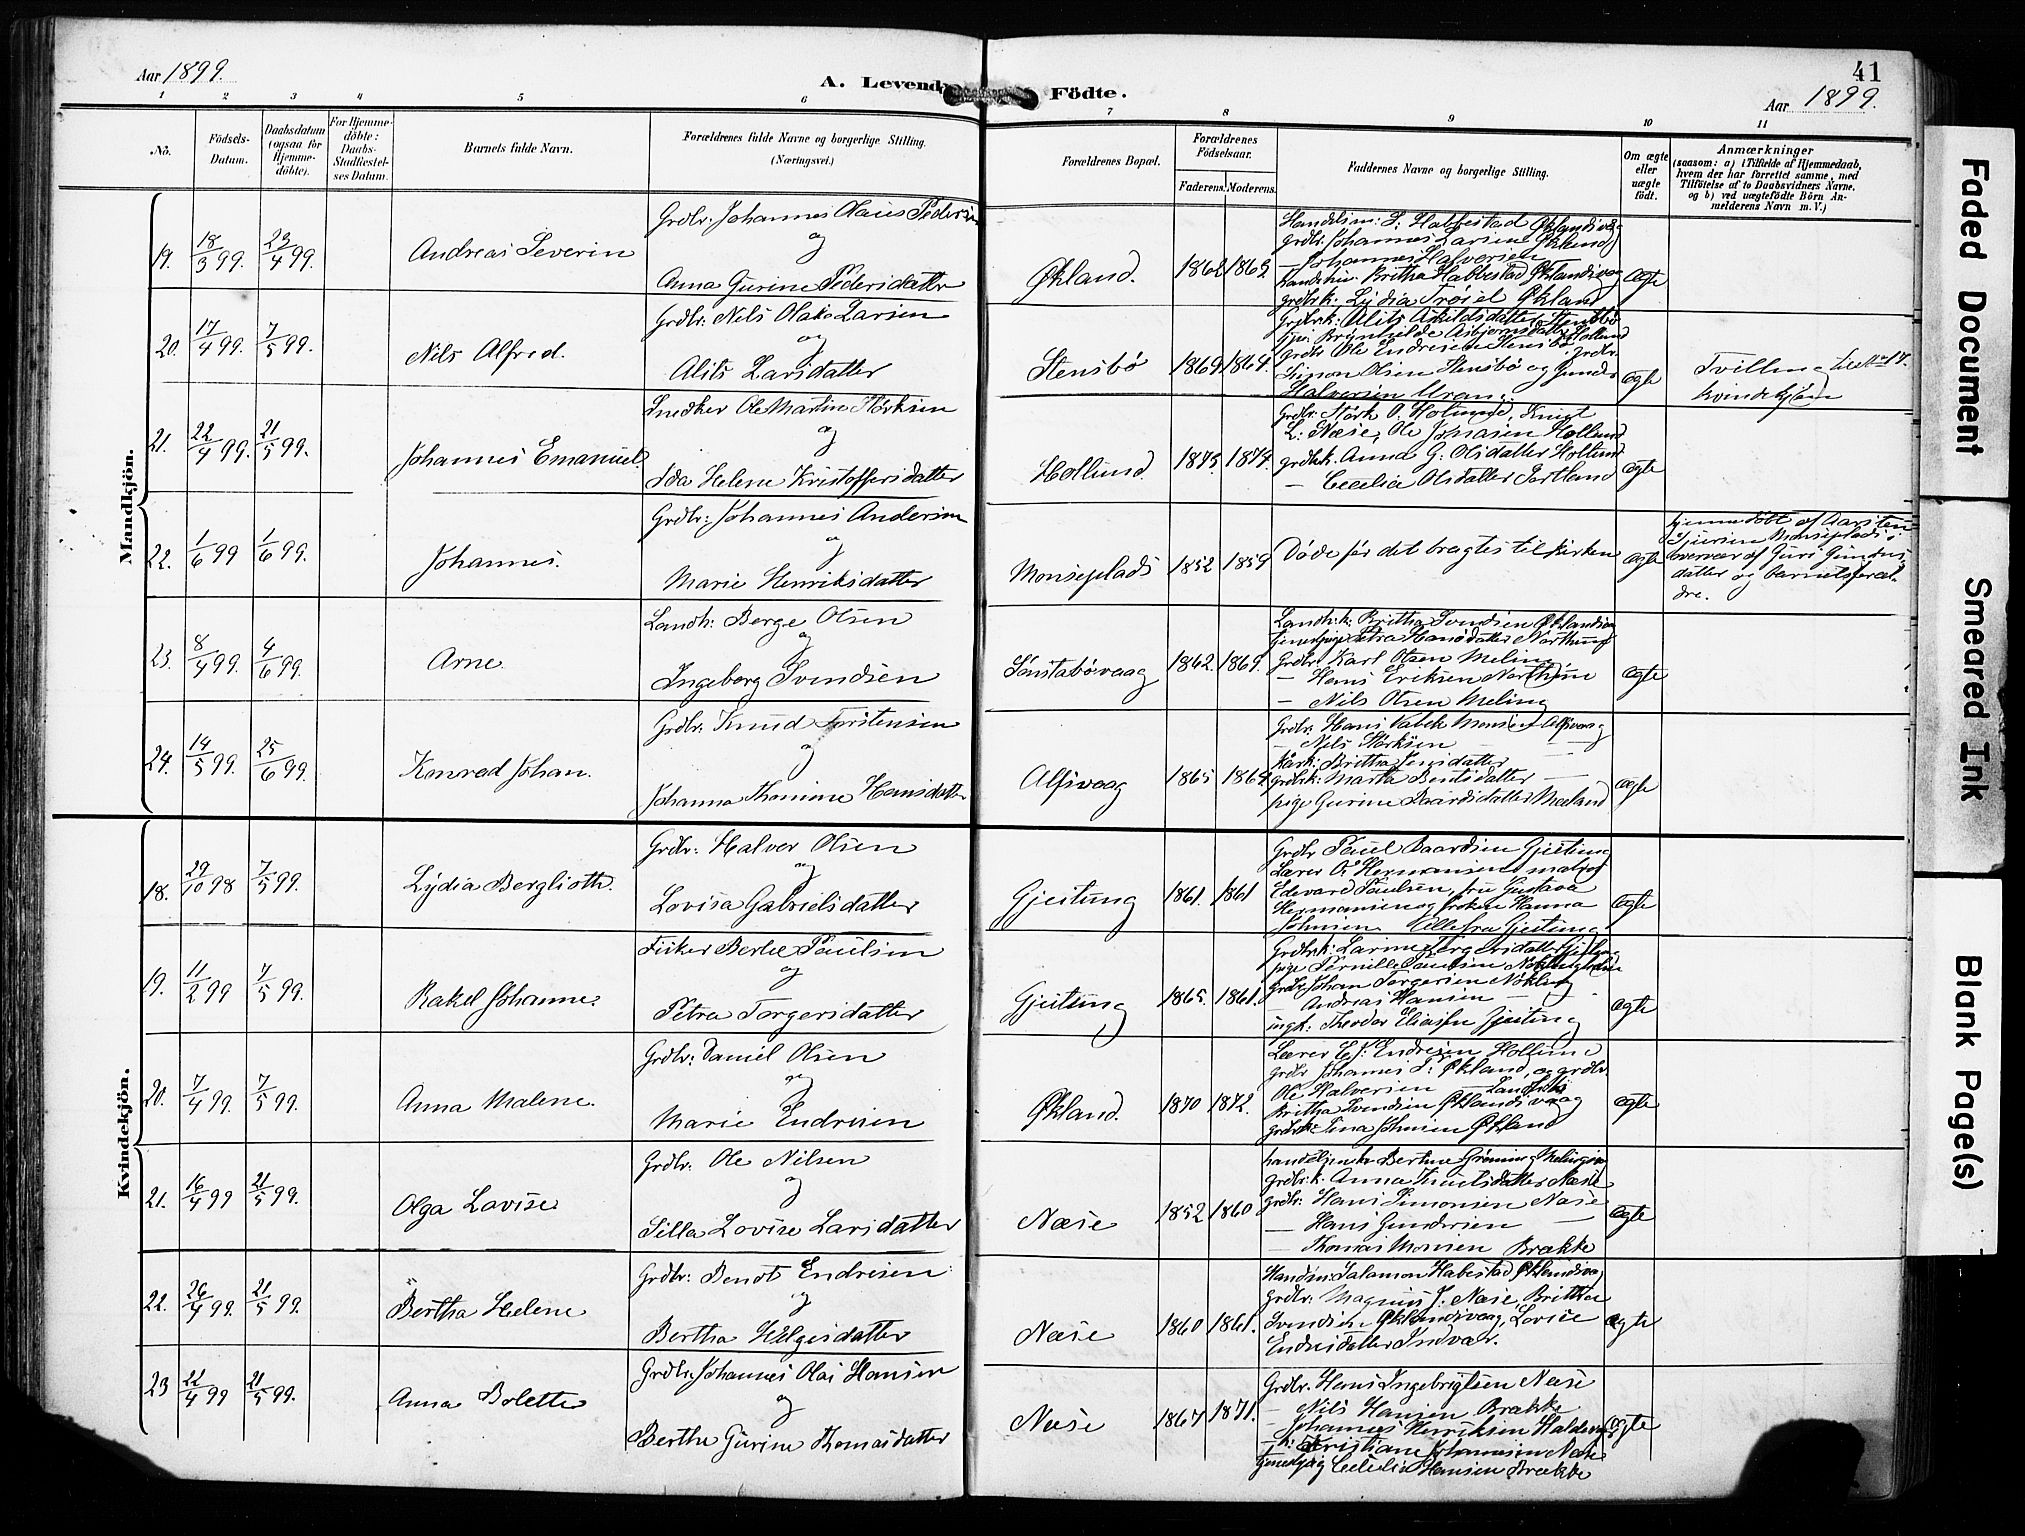 Aar 1899.
A. Levende Födte.
41
Aar 1899.
1 2 3 4 5 6 7 8 9 10 11
No.
Födsels-
Datum.
Daabsdatum
(ogsaa for
Hjemme-
döbte).
For Hjemme-
döbte:
Daabs-
Stadfæstel-
ses Datum.
Barnets fulde Navn.
Forældrenes fulde Navne og borgerlige Stilling.
(Næringsvei.)
Forældrenes Bopæl.
Forældrenes
Födselsaar.
Faderens. Moderens.
Faddernes Navne og borgerlige Stilling.
Om ægte
eller
uægte
födt.
Anmærkninger
(saasom: a) i Tilfælde af Hjemmedaab,
hvem der har forrettet samme, med
Tilföielse af to Daabsvidners Navne,
og b) ved uægtefödte Börn An-
melderens Navn m. V.)
Mandkjön.
19. 18/3 99. 23/4 99. Andreas Severin
Grdbr: Johannes Olaus Pedersen
og
Anna Gurine Pedersdatter
Økland. 1862 1862
Handelsm: S. Habbestad Øklandsvåg
grdbr. Johannes Larsen Økland
— Johannes Halvorsen
Handelsm. Britha Habbestad Øklandsvaag
grdbrk. Lydia Økland
ægte
20. 17/4 99. 7/5 99. Nils Alfred.
Grdbr: Nils Olai Larsen
og
Alits Larsdatter
Stensbø 1869 1864.
Grdbrk: Alits Stensbø
Brynhilde Asbjørnsdatter Hollund
grdbr Ole Endresen Stensbø grdbr.
Simon Olsen Stensbø og Gunder
Halvorsen Uran.
ægte
Tvilling
kvindekjøn
21. 22/4 99. 21/5 99. Johannes Emanuel.
Snedker Ole Martin Størksen
og
Ida Helene Kristoffersdatter
Hollund. 1875 1874
Grdbr: Størk O. Hollund, Knut
L: Næse, Ole Johnsen Hollund
grdbrk. Anna G. Olsdatter Hollund
— Cecelia Olsdatter
ægte
22. 1/6 99 1/6 99. Johannes.
Grdbr: Johannes Andersen
og
Marie Henriksdatter
Monseplads 1852 1859
Døde før det bragtes til kirken
ægte
hjemmedöbt af
Monseplads i
overvær af Guri
datter og barnets foræl-
dre.
23. 8/4 99. 4/6 99. Arne.
Landh: Berge Olsen
og
Ingeborg Svendsen
Sønstabøvaag 1862 1869.
Landh.k: Britha Svendsen Øklandsvaag
tjenestpige Petra Hansdatter Northun
Grdbr Karl Olsen Meling
— Hans Eriksen Northun
— Nils Olsen Meling
ægte
24. 14/5 99. 25/6 99. Konrad Johan.
Grdbr. Knud Torstensen
og
Johanna Thomine Hansdatter
Alfsvaag 1865 1864
Grdbr. Hans Monsen Alfsvaag
— Nils Størksen —
Kark: Britha —
grdbrk: Marta Bentsdatter —
pige Gurine Baardsdatter Mæland
ægte
Kvindekjön.
18. 29/10 98 7/5 99. Lydia Berglioth.
Grdbr: Halvor Olsen
og
Lovisa Gabrielsdatter
Gjeitung 1861. 1861
Grdbr Poul Baardsen Gjeitung
Lærer O. Hermansen,
Edevard Paulsen, fru Gustava
Hermansen og frøken Hanna
Johnsen. Alle fra Gjeitung
ægte
19. 11/2 99 7/5 99. Rakel Johanne.
Fisker Bertel Paulsen
og
Petra Torgersdatter
Gjeitung 1865. 1861.
Grdbrk: Larine Torgersdatter
pige Pernille Paulsen
Grdbr Johan Torgersen Nøkling
— Andreas Hansen —
ungk: Theodor Eliassen Gjeitung
ægte
20. 7/4 99. 7/5 99. Anna Malene.
Grdbr: Daniel Olsen
og
Marie Endresen
Økland. 1870 1872.
Lærer E. Endresen Hollund
grdbr Johannes Økland, og grdbr.
Ole Halvorsen —
Britha Svendsen Øklandsvaag
grdbrk: Sina Johnsen Økland
ægte
21. 16/4 99 21/5 99. Olga Lovise
Grdbr: Ole Nilsen
og
Silla Lovise Larsdatter
Næse 1852 1860
Bertine Grønning
grdbr.k: Anna Knutsdatter Næse
grdbr: Hans Simonsen Næse
— Hans Gundersen —
— Thomas Monsen Brække
ægte
22. 26/4 99. 21/5 99. Bertha Helene
Grdbr: Bendt Endresen
og
Bertha Helgesdatter
Næse 1860 1861.
Handm: Salamon Habestad Øklandsvaag
grdbr: Magnus J. Næse, Britha
Svendsen Øklandsvaag, Lovise
Endresdatter Indvær.
ægte
23 22/4 99 21/5 99. Anna Bolette
Grdbr. Johannes Olai Hansen
og
Berthe Gurine Thomasdatter
Næse 1867 1871.
Grdbr. Hans Ingebrigtsen Næse
— Nils Hansen Brække
— Johannes Henriksen
— k: Kristiane Johannesen Næse
tjenestpige Cecelia Hansen Brække
ægte
Faded Document
Smeared Ink
Blank Page(s)